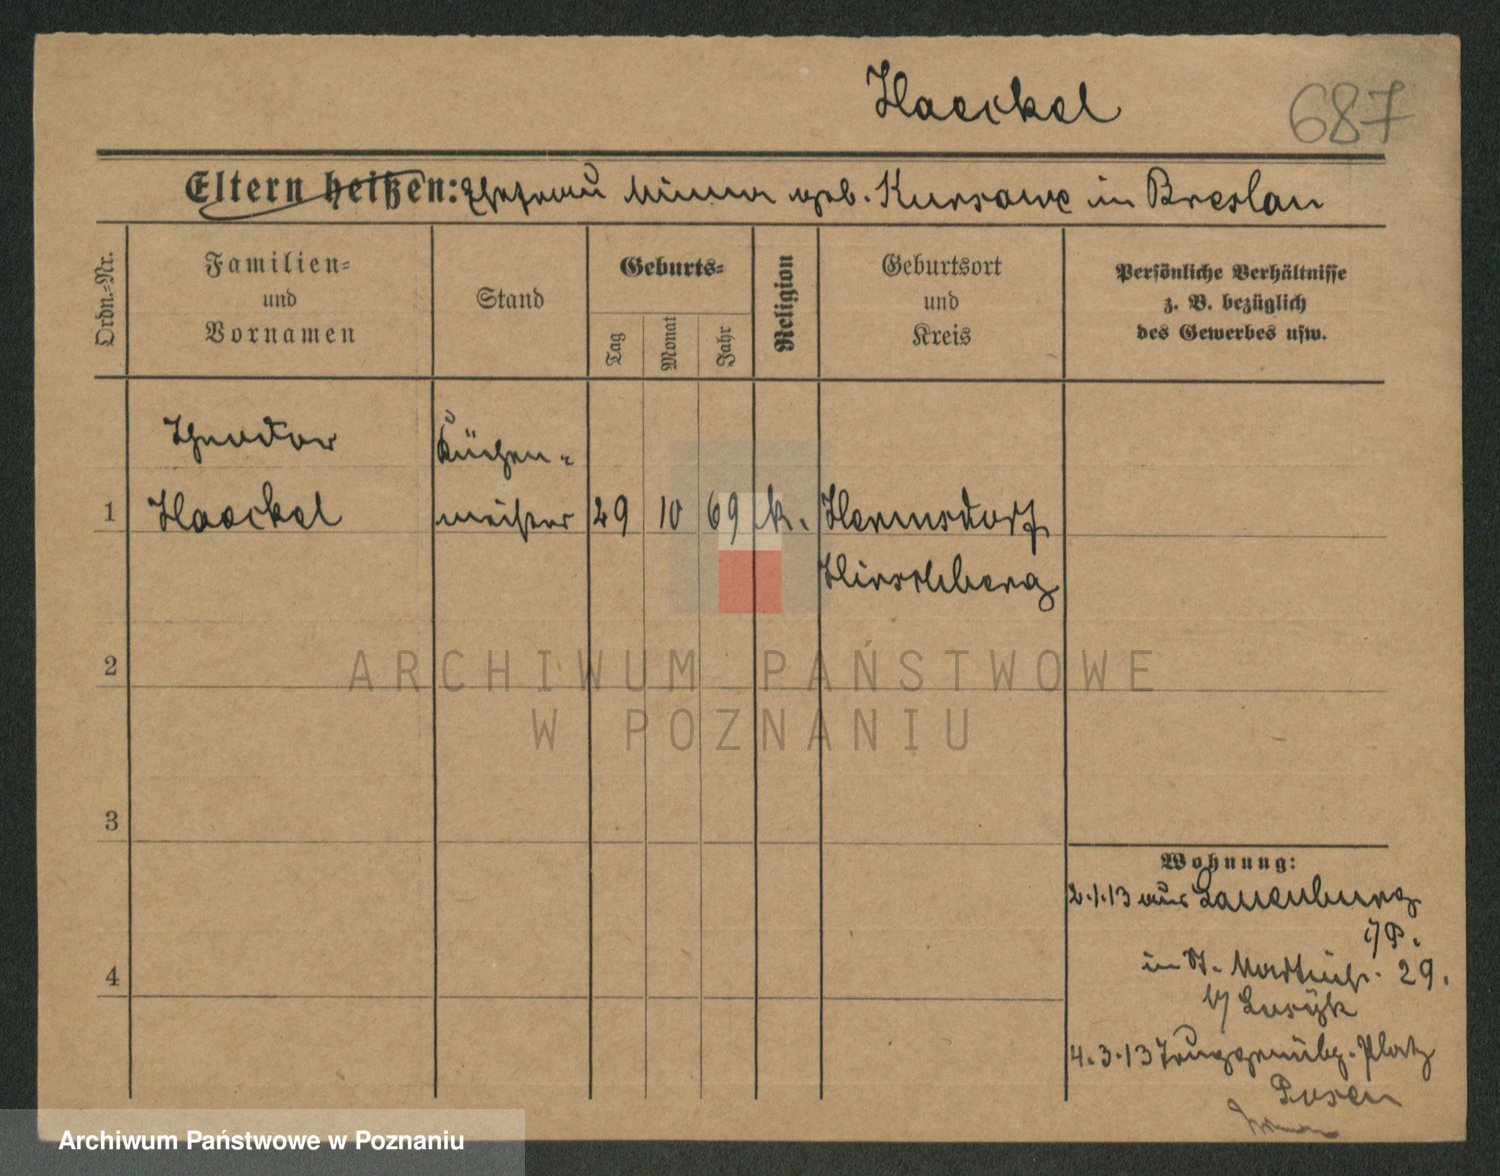 Haeckel
687
Eltern heißen: Ehefrau Minna geb. Kursawe in Breslau
Ordn.-Nr.
Familien-
und
Vornamen
Stand
Geburts-
Tag
Monat
Jahr
Religion
Geburtsort
und
Kreis
Persönliche Verhältnisse
z. B. bezüglich
des Gewerbes usw.
Theodor
Küchen-
1
Haeckel
meister
29
10
69
k.
Hermsdorf
Hirschberg
2
ARCHIWUM PAŃSTWOWE
W POZNANIU
3
Wohnung:
2.1.13 aus Lauenburg
i/P.
4
in St. Martinstr. 29.
b/
4.3.13 Truppenübg. Platz
Posen
Archiwum Państwowe w Poznaniu